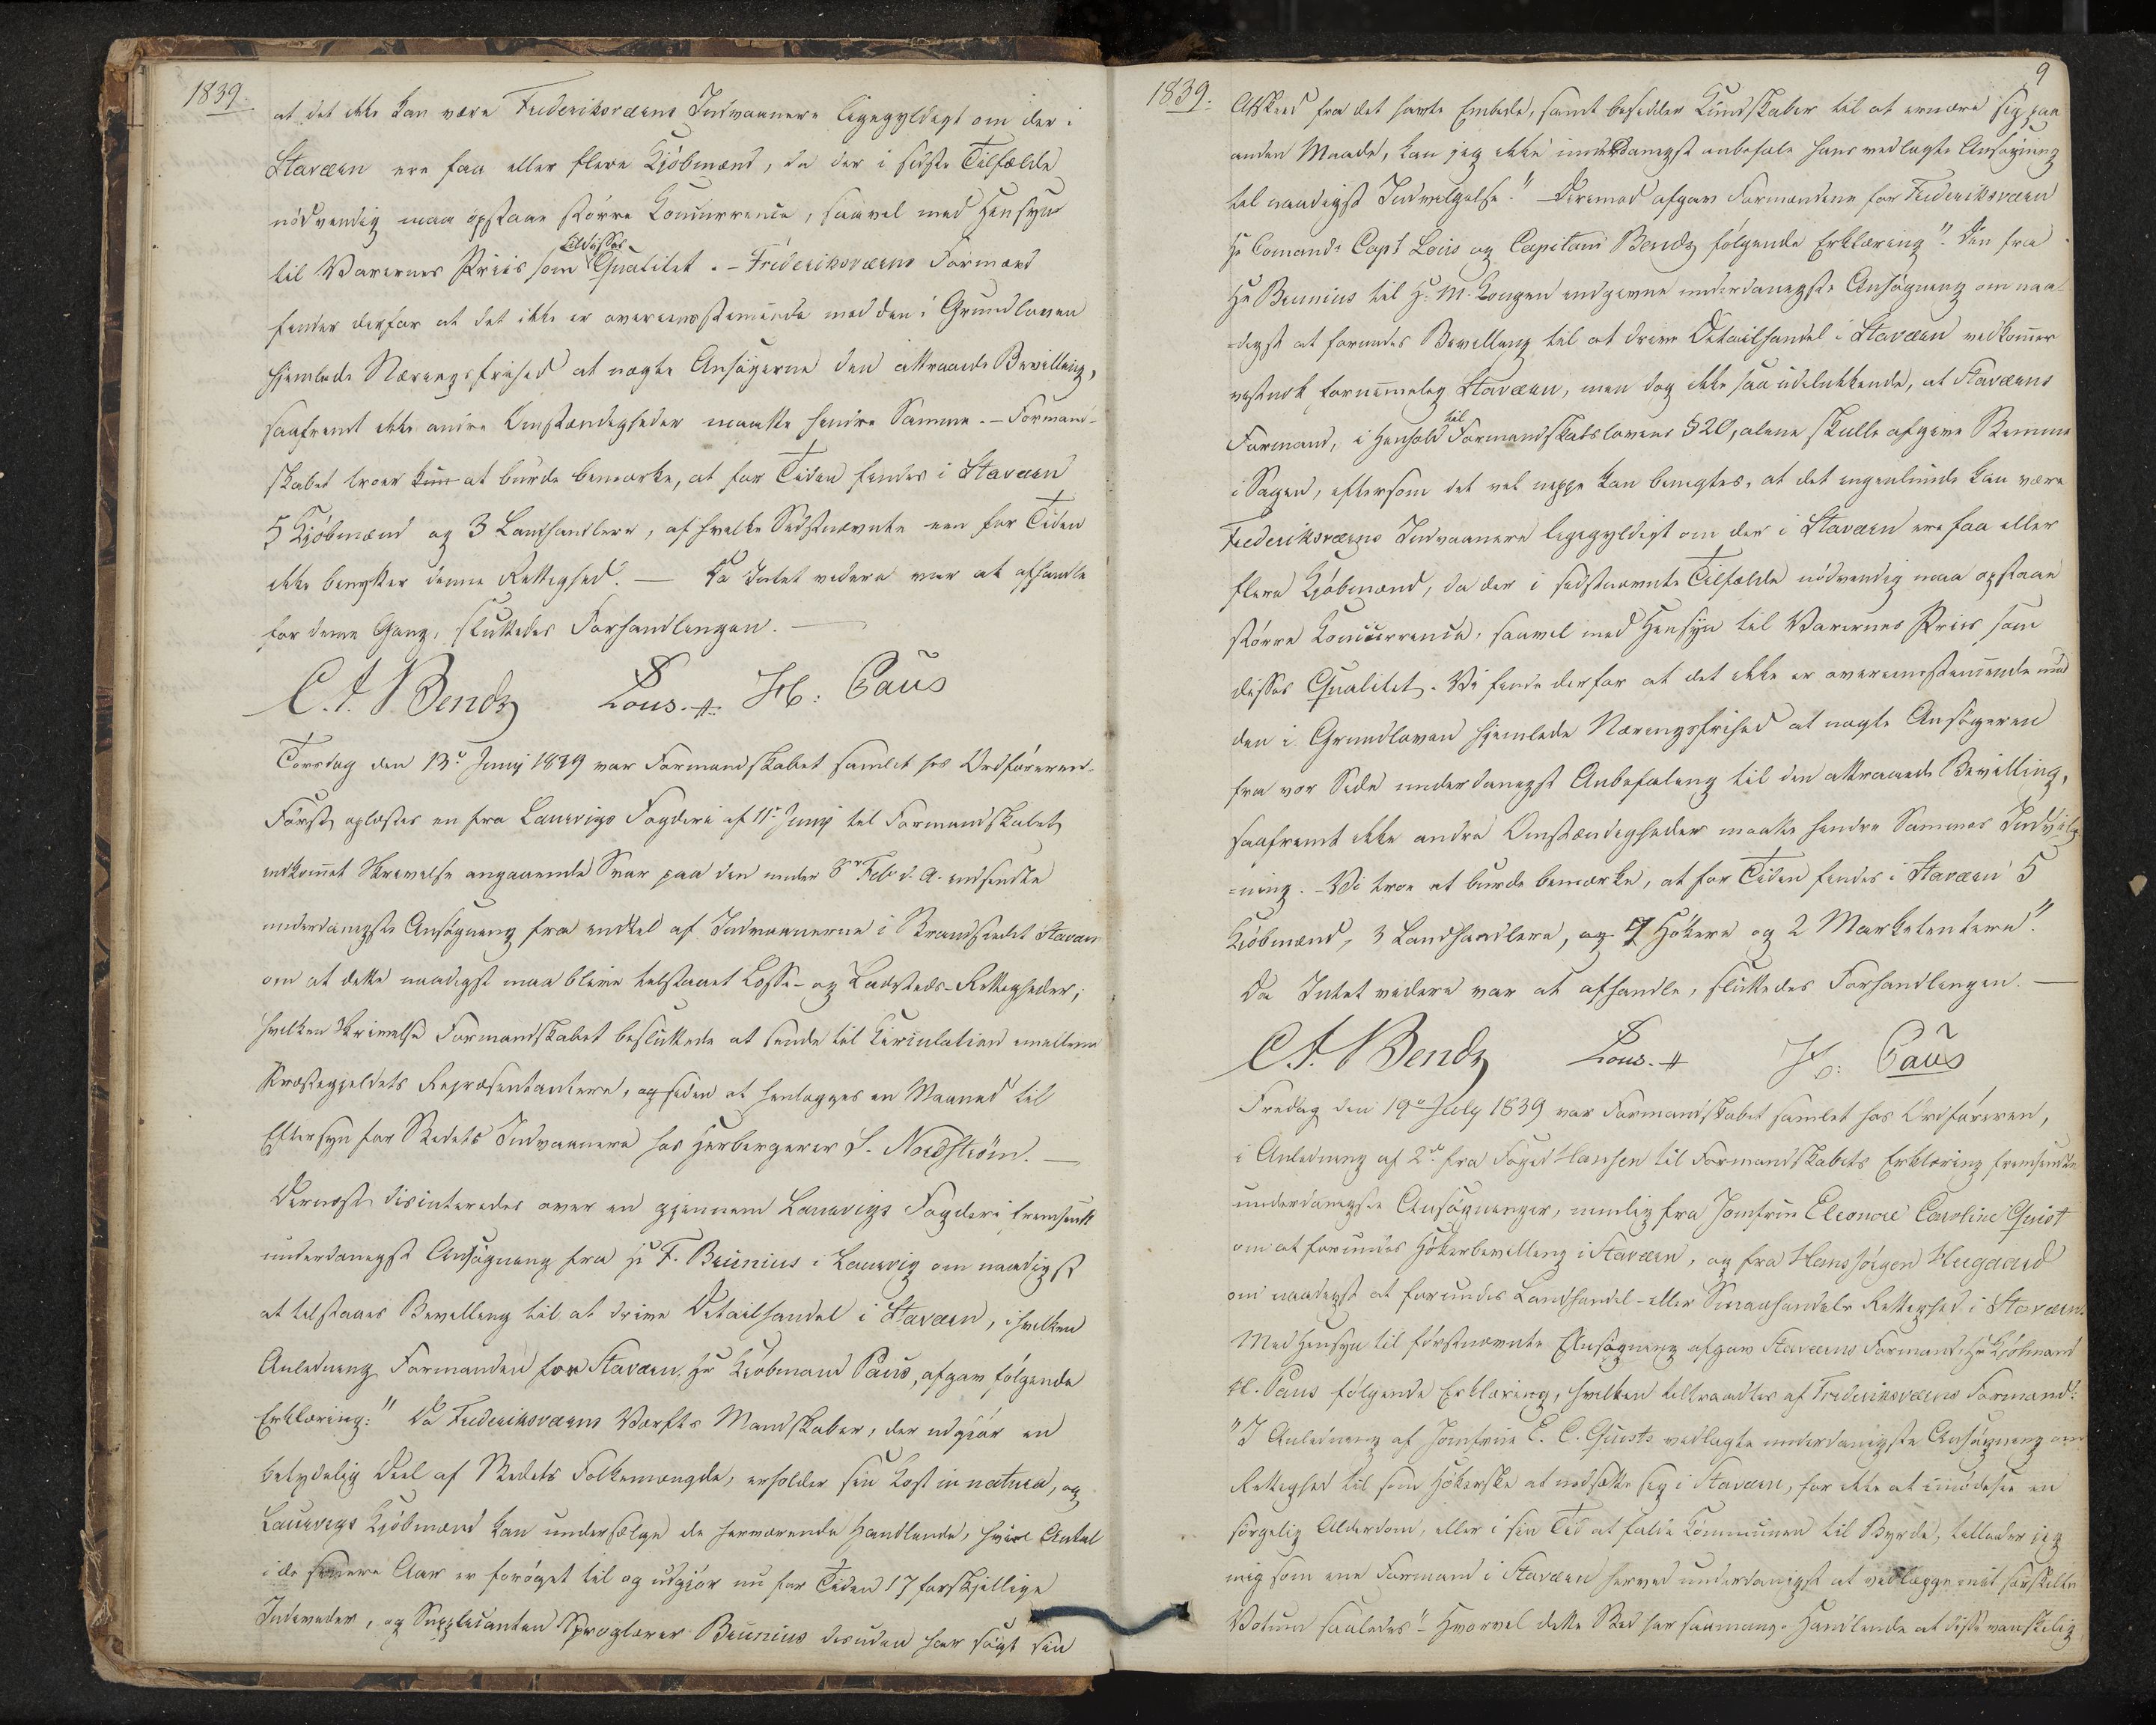 1839.
at det ikke kan være Frederiksværns Indvaanere ligegyldigt om der i
Staværn ere faa eller flere Kjöbmænd, da der i sidste Tilfælde
nödvendig maa opstaae större Koncurrence, saavel med Hensyn
til Varernes Priis som disses Qvalitet. - Frideriksværns Formænd
finder derfor at det ikke er overeensstemmende med den i Grundloven
hjemlede Næringsfrihed at nægte Ansögerne den attraaede Bevilling,
saafremt ikke andre Omstændigheder maatte hindre Samme. - Formand-
skabet troer kun at burde bemærke, at for Tiden findes i Staværn
5 Kjöbmænd og 3 Landhandlere, af hvilke Sidstnævnte een for Tiden
ikke benytter denne Rettighed. — Da Intet videre var at afhandle
for denne Gang, sluttedes Forhandlingen. —
C. F. Bendz Lous. H: Paus
Torsdag den 13de Juny 1839 var Formandskabet samlet hos Ordföreren.
Först oplæstes en fra Laurvigs Fogderi af 11te Juny til Formandskabet
indkommet Skrivelse angaaende Svar paa den under 8de Febr d. A. indsendte
underdanigste Ansögning fra endeel af Indvaanerne i Strandstedet Staværn
om at dette naadigst maa blive tilstaaet Losse- og Ladesteds-Rettigheder;
hvilken Skrivelse Formandskabet besluttede at sende til Circulation imellem
Præstegjeldets Repræsentantere, og siden at henlægges en Maaned til
Eftersyn for Stedets Indvaanere hos Herbergerer S. Nordström. —
Dernæst disinteredes over en gjennem Laurvigs Fogderi fremsendt
underdanigst Ansögning fra Hr F. Brunius i Laurvig om naadigst
at tilstaaes Bevilling til at drive Detailhandel i Staværn, i hvilken
Anledning Formanden for Staværn, Hr Kjöbmand Paus, afgav fölgende
Erklæring: " Da Frederiksværns Værfts Mandskaber, der udgiör en
betydelig Deel af Stedets Folkemængde, erholder sin Kost in natura, og
Laurvigs Kjöbmænd kan undersælge de herværende Handlende, hvis Antal
i de senere Aar er foröget til og udgiör nu for Tiden 17 forskjellige
Individer, og Supplicanten Sproglærer Brunius desuden har sögt sin
9
1839.
Afskeed fra det havte Embede, samt besidder Kundskaber til at ernære sig paa
anden Maade, kan jeg ikke underdanigst anbefale hans vedlagte Ansögning
til naadigst Indvilgelse." - Derimod afgav Formændene for Frederiksværn
Hr Comandr Capt Lous og Capitain Bendz fölgende Erklæring: "Den fra
Hr Brunius til H. M. Kongen indgivne underdanigste Ansögning om naa-
=digst at forundes Bevilling til at drive Detailhandel i Staværn vedkommer
vistnok fornemmelig Staværn, men dog ikke saa udelukkende, at Staværns
Formand, i Henhold til Formandskabslovens § 20, alene skulle afgive Stemme
i Sagen, eftersom det vel neppe kan benegtes, at det ingenlunde kan være
Frederiksværns Indvaanere ligegyldigt om der i Staværn ere faa eller
flere Kjöbmænd, da der i sidstnævnte Tilfælde nödvendig maa opstaae
större Koncurrence, saavel med Hensyn til Varernes Priis som
disses Qualitet. Vi finde derfor at det ikke er overeensstemmende med
den i Grundloven hjemlede Næringsfrihed at nægte Ansögeren
fra vor Side underdanigst Anbefaling til den attraaede Bevilling,
saafremt ikke andre Omstændigheder maatte hindre Sammes Indvilg-
=ning. - Vi troe at burde bemærke, at for Tiden findes i Staværn 5
Kjöbmænd, 3 Landhandlere, og 7 Hökere og 2 Marketentere."
Da Intet videre var at afhandle, sluttedes Forhandlingen. —
C. F. Bendz Lous. H: Paus
Fredag den 19de July 1839 var Formandskabet samlet hos Ordföreren,
i Anledning af 2de fra Foged Hansen til Formandskabets Erklæring fremsendte
underdanigste Ansögninger, nemlig fra Jomfrue Eleonore Caroline Quist
om at forundes Hökerbevilling i Staværn, og fra Hans Jörgen Hugaard
om naadigst at forundes Landhandel- eller Smaahandels Rettighed i Staværn.
Med Hensyn til förstnævnte Ansögning afgav Staværns Formand Hr Kjöbmand
H. Paus fölgende Erklæring, hvilken tiltraadtes af Frideriksværns Formænd:
"I Anledning af Jomfrue E. C. Quists vedlagte underdanigste Ansögning om
Rettighed til som Hökerske at nedsætte sig i Staværn, for ikke at imödesee en
sörgelig Alderdom, eller i sin Tid at falde Kommunen til Byrde, tillader jeg
mig som ene Formand i Staværn herved underdanigst at vedlægge mit særskilte
Votum saaledes: - Hvorvel dette Sted har saamange Handlende at disse vanskelig